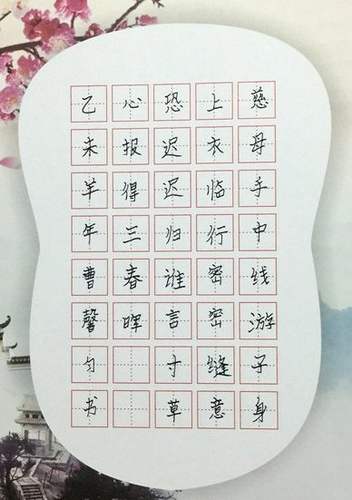 慈母手中线游子身
上衣临行密密缝意
恐迟迟归谁言寸草
心报得三春晖
乙未羊年曹馨匀书